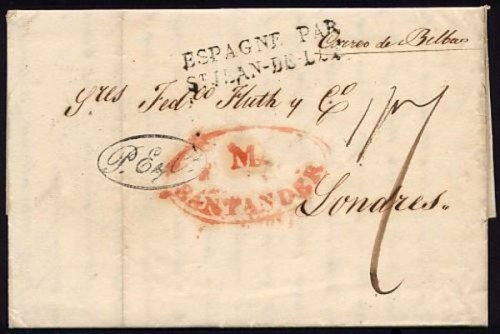 ESPAGNE PAR
St JEAN-DE-LUZ
Correo de Bilbao
Sres Fedco Huth y Co
1/7
P. E. y C.
M.
SANTANDER
Londres.